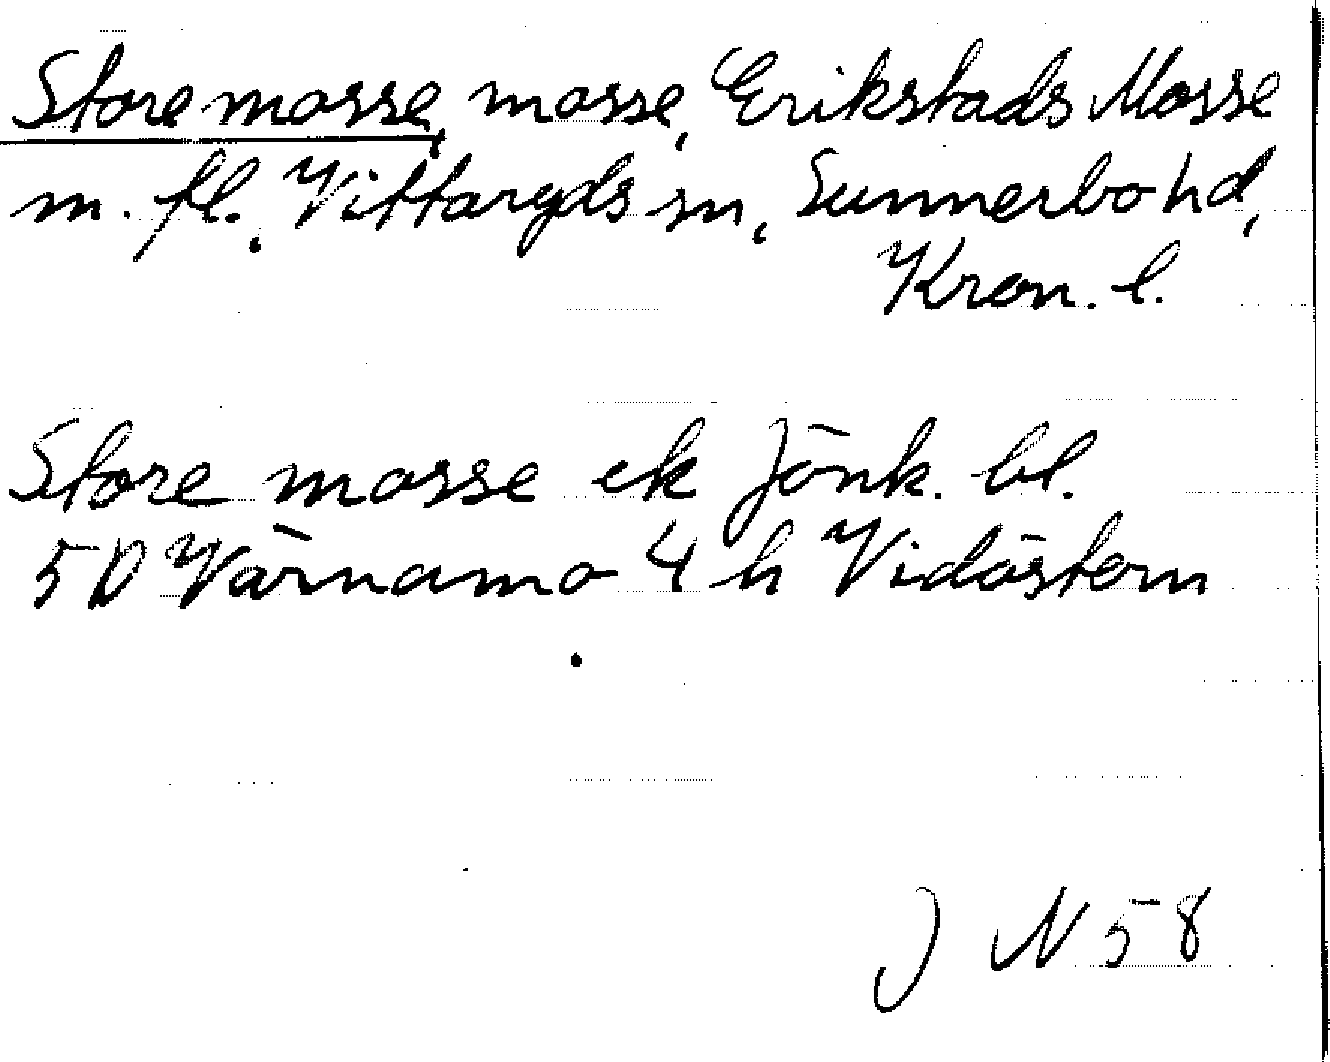 Store mosse, mosse, Erikstads Mosse
m. fl., Vittaryds sn, Sunnerbo hd,
Kron. l.
Store mosse ek Jönk. bl.
5D Värnamo 4 h Vidöstern
J N 58